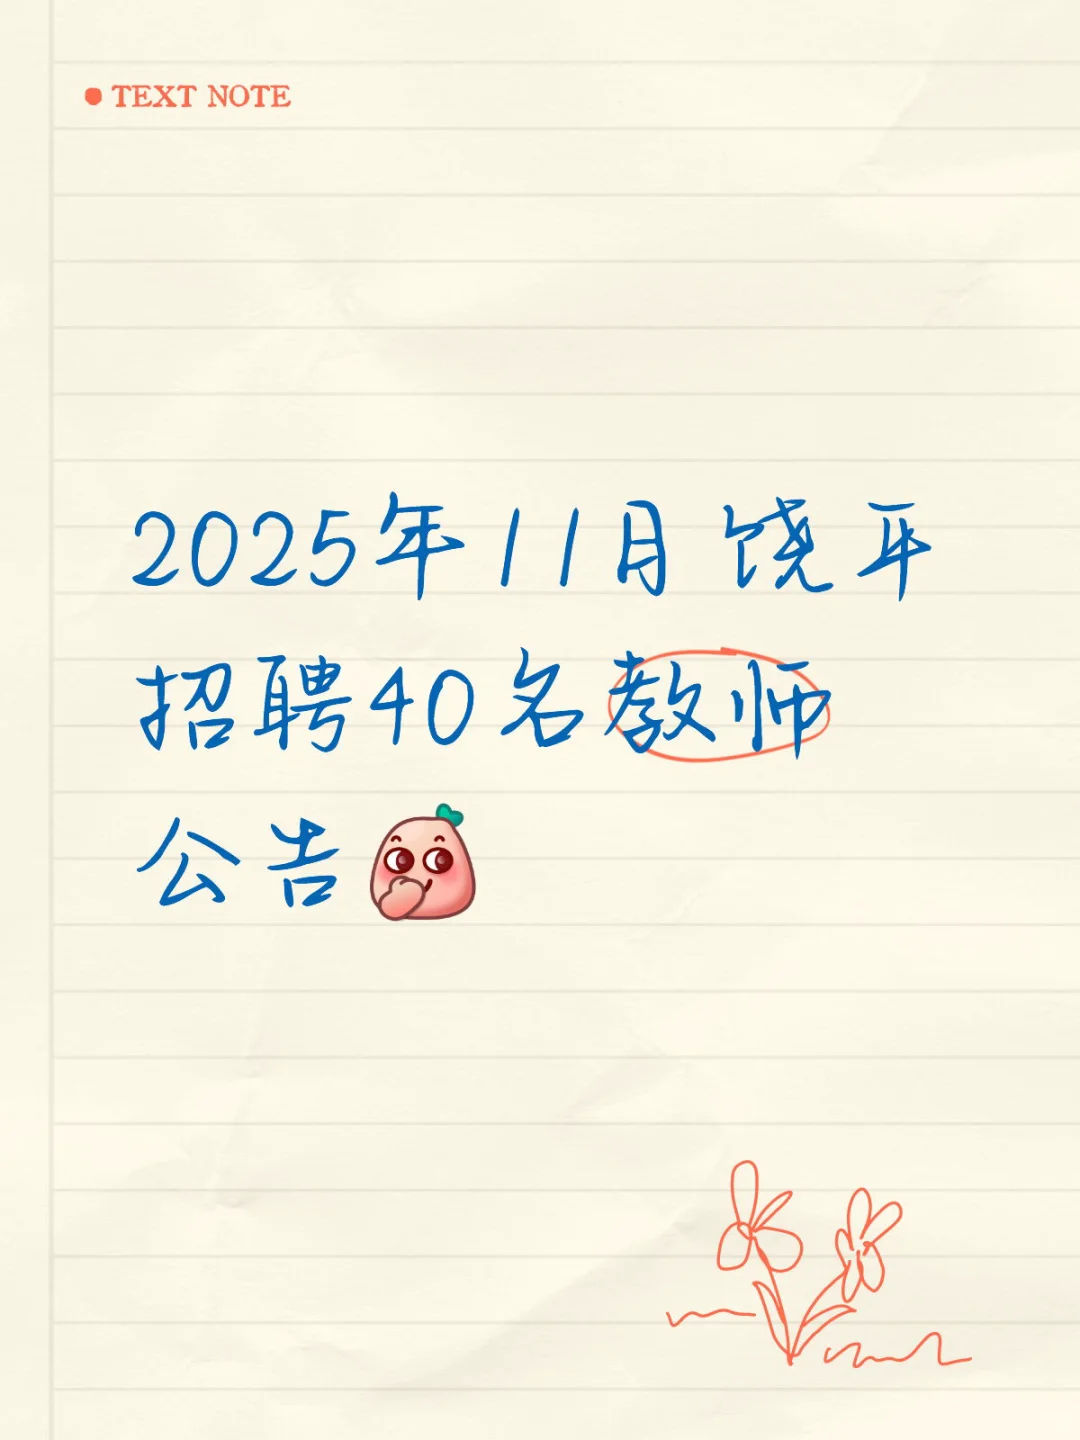 TEXT NOTE
2025年11月饶平
招聘40名教师
公告